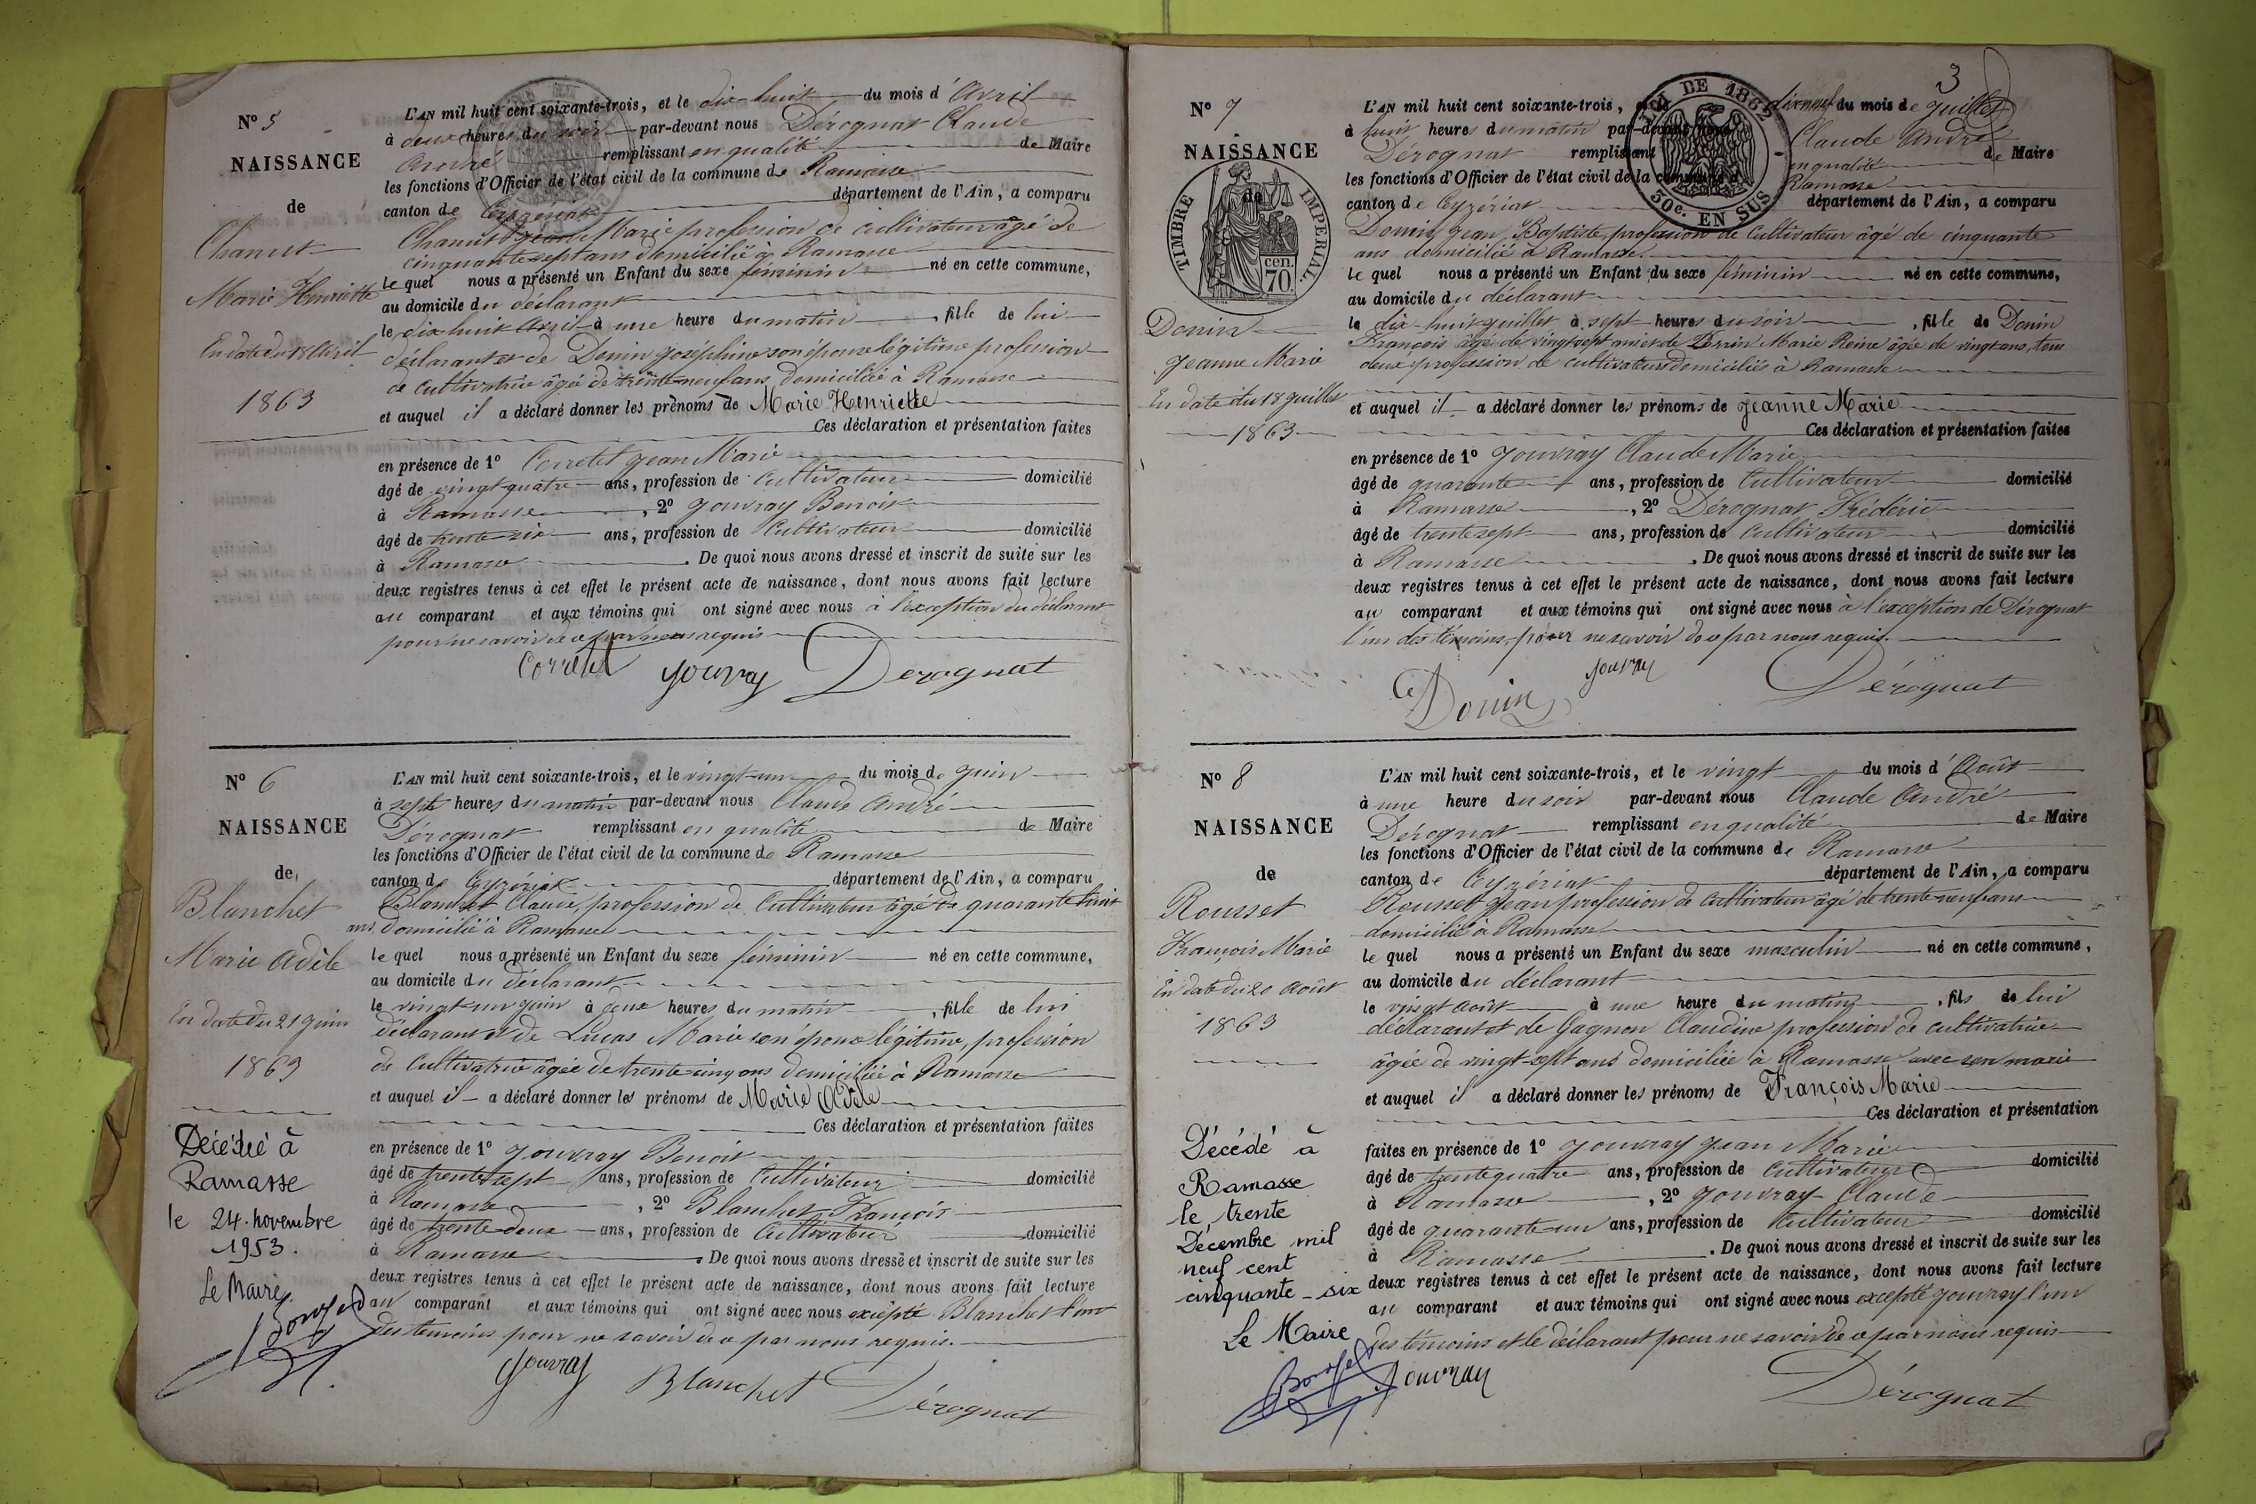 N° 5
NAISSANCE
de
Chanut
Marie Henriette
En date du 18 Avril
1863
L'AN mil huit cent soixante-trois, et le dix-huit du mois d'Avril
à deux heures du soir par-devant nous Dérognat Claude
André remplissant en qualité de Maire
les fonctions d'Officier de l'état civil de la commune de Ramasse
canton de Ceyzériat département de l'Ain, a comparu
Chanut Marie profession de cultivateur âgé de
cinquante-sept ans domicilié à Ramasse
le quel nous a présenté un Enfant du sexe féminin né en cette commune,
au domicile du déclarant
le dix-huit Avril à une heure du matin, fille de lui
déclarant et de Donin Joséphine son épouse légitime profession
de cultivatrice âgée de trente-neuf ans domiciliée à Ramasse
et auquel il a déclaré donner les prénoms de Marie Henriette
Ces déclaration et présentation faites
en présence de 1° Corretel Jean Marie
âgé de vingt-quatre ans, profession de Cultivateur domicilié
à Ramasse, 2° Jouvray Benoit
âgé de trente-six ans, profession de Cultivateur domicilié
à Ramasse. De quoi nous avons dressé et inscrit de suite sur les
deux registres tenus à cet effet le présent acte de naissance, dont nous avons fait lecture
au comparant et aux témoins qui ont signé avec nous à l'exception du déclarant
pour ne savoir de ce par nous requis
Corretel Jouvray Derognat
N° 6
NAISSANCE
de
Blanchet
Marie Adèle
En date du 21 Juin
1863
Décédée à
Ramasse
le 24 novembre
1953.
Le Maire,
L'AN mil huit cent soixante-trois, et le vingt-un du mois de Juin
à sept heures du matin par-devant nous Claude André
Dérognat remplissant en qualité de Maire
les fonctions d'Officier de l'état civil de la commune de Ramasse
canton de Ceyzériat département de l'Ain, a comparu
Blanchet Claude, profession de Cultivateur âgé de quarante huit
ans domicilié à Ramasse
le quel nous a présenté un Enfant du sexe féminin né en cette commune,
au domicile du déclarant
le vingt-un Juin à deux heures du matin, fille de lui
déclarant et de Lucas Marie son épouse légitime, profession
de Cultivatrice âgée de trente-cinq ans domiciliée à Ramasse
et auquel il a déclaré donner les prénoms de Marie Adèle
Ces déclaration et présentation faites
en présence de 1° Jouvray Benoit
âgé de trente-sept ans, profession de Cultivateur domicilié
à Ramasse, 2° Blanchet François
âgé de trente deux ans, profession de Cultivateur domicilié
à Ramasse. De quoi nous avons dressé et inscrit de suite sur les
deux registres tenus à cet effet le présent acte de naissance, dont nous avons fait lecture
au comparant et aux témoins qui ont signé avec nous excepté Blanchet l'un
des témoins pour ne savoir de ce par nous requis.
Jouvray Blanchet Dérognat
3
N° 7
NAISSANCE
de
TIMBRE IMPERIAL
cen.
70.
Donin
Jeanne Marie
En date du 18 Juillet
1863
LOI DE 1862
30c. EN SUS
L'AN mil huit cent soixante-trois, dix neuf du mois de Juillet
à huit heures du matin par-devant nous Claude André
Dérognat remplissant en qualité de Maire
les fonctions d'Officier de l'état civil de la commune d Ramasse
canton de Ceyzériat département de l'Ain, a comparu
Donin Jean Baptiste, profession de Cultivateur âgé de cinquante
ans domicilié à Ramasse.
le quel nous a présenté un Enfant du sexe féminin né en cette commune,
au domicile du déclarant
le dix-huit Juillet à sept heures du soir, fille de Donin
François âgé de vingt-sept ans et de Perrin Marie Reine âgée de vingt ans, tous
deux profession de cultivateurs domiciliés à Ramasse
et auquel il a déclaré donner les prénoms de Jeanne Marie
Ces déclaration et présentation faites
en présence de 1° Jouvray Claude Marie
âgé de quarante ans, profession de Cultivateur domicilié
à Ramasse, 2° Dérognat Frédéric
âgé de trente sept ans, profession de Cultivateur domicilié
à Ramasse. De quoi nous avons dressé et inscrit de suite sur les
deux registres tenus à cet effet le présent acte de naissance, dont nous avons fait lecture
au comparant et aux témoins qui ont signé avec nous à l'exception de Dérognat
l'un des témoins, pour ne savoir de ce par nous requis.
Donin Jouvray Dérognat
N° 8
NAISSANCE
de
Rousset
François Marie
En date du 20 Août
1863
Décédé à
Ramasse
le, trente
Décembre mil
neuf cent
cinquante-six
Le Maire
L'AN mil huit cent soixante-trois, et le vingt du mois d'Août
à une heure du soir par-devant nous Claude André
Dérognat remplissant en qualité de Maire
les fonctions d'Officier de l'état civil de la commune de Ramasse
canton de Ceyzériat département de l'Ain, a comparu
Rousset Jean profession de Cultivateur âgé de trente-neuf ans
domicilié à Ramasse
le quel nous a présenté un Enfant du sexe masculin né en cette commune,
au domicile du déclarant
le vingt Août à une heure du matin, fils de lui
déclarant et de Gagnon Claudine profession de cultivatrice
âgée de vingt-sept ans domiciliée à Ramasse avec son marie
et auquel il a déclaré donner les prénoms de François Marie
Ces déclaration et présentation
faites en présence de 1° Jouvray Jean Marie
âgé de trente quatre ans, profession de Cultivateur domicilié
à Ramasse, 2° Jouvray Claude
âgé de quarante un ans, profession de Cultivateur domicilié
à Ramasse. De quoi nous avons dressé et inscrit de suite sur les
deux registres tenus à cet effet le présent acte de naissance, dont nous avons fait lecture
au comparant et aux témoins qui ont signé avec nous excepté Jouvray l'un
des témoins et le déclarant pour ne savoir de ce par nous requis
Jouvray Dérognat